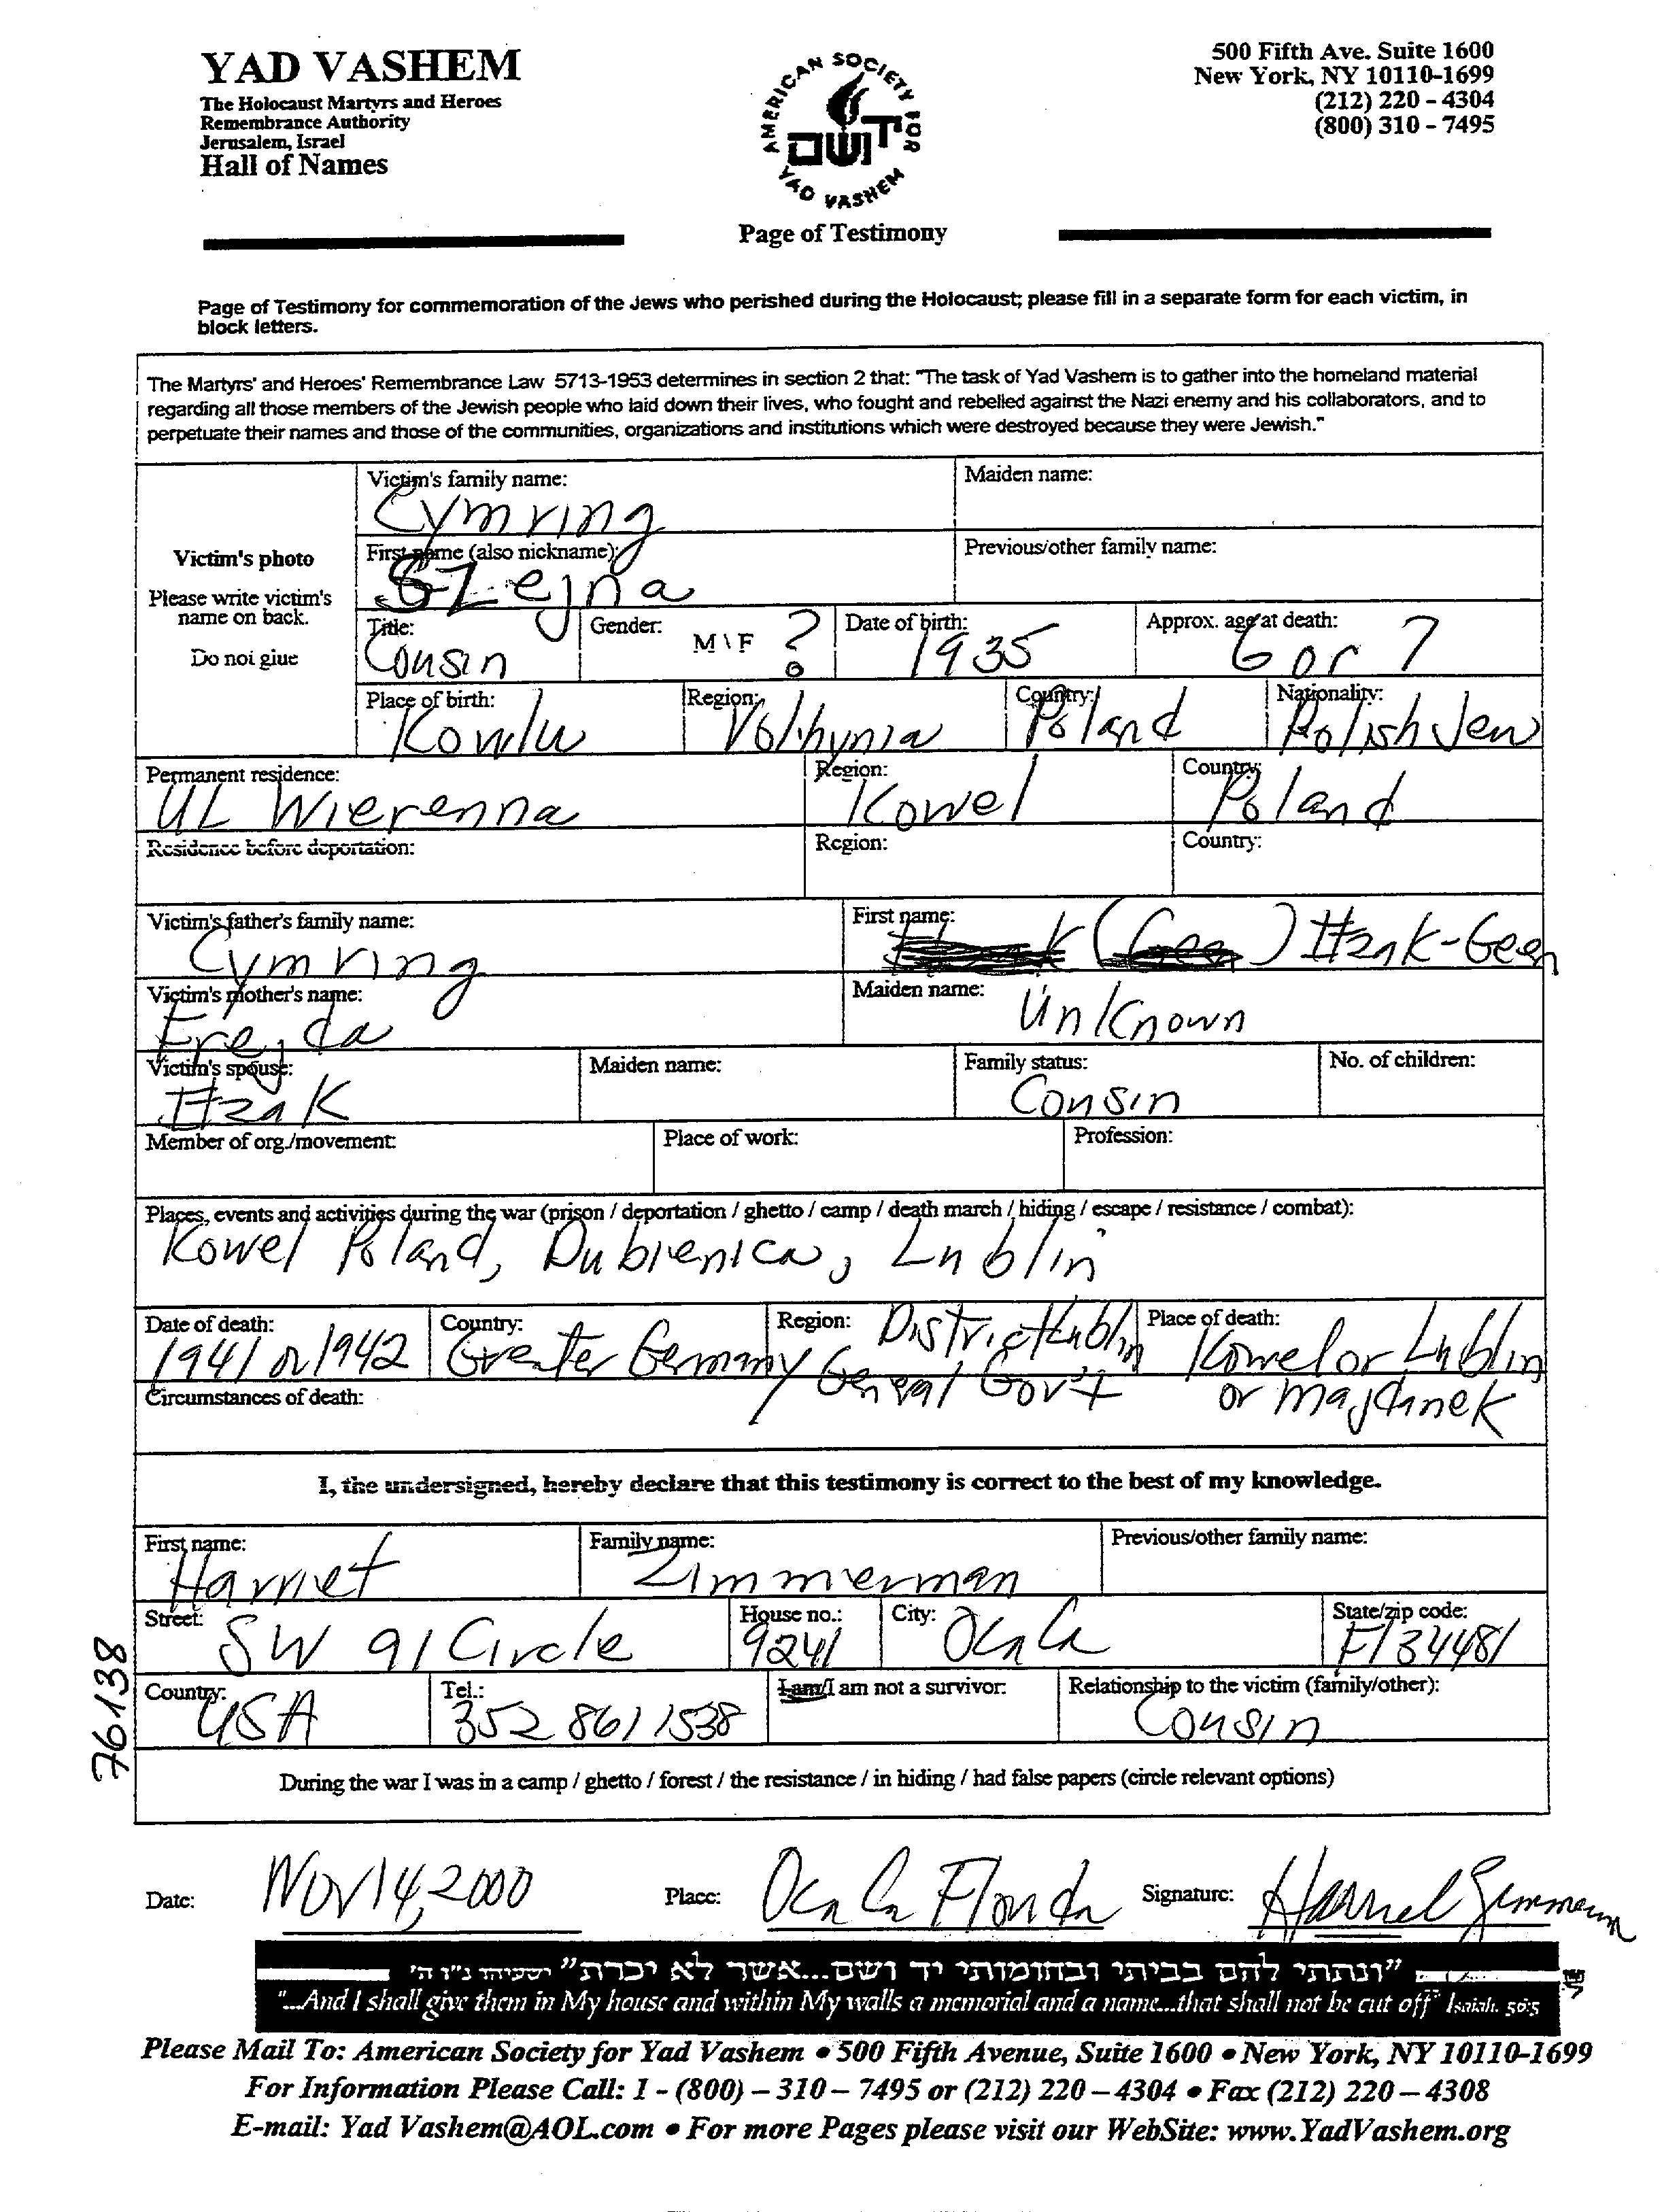 YAD VASHEM
The Holocaust Martyrs and Heroes
Remembrance Authority
Jerusalem, Israel
Hall of Names
AMERICAN SOCIETY FOR
יד ושם
YAD VASHEM
500 Fifth Ave. Suite 1600
New York, NY 10110-1699
(212) 220 - 4304
(800) 310 - 7495
Page of Testimony
Page of Testimony for commemoration of the Jews who perished during the Holocaust; please fill in a separate form for each victim, in
block letters.
The Martyrs' and Heroes' Remembrance Law 5713-1953 determines in section 2 that: "The task of Yad Vashem is to gather into the homeland material
regarding all those members of the Jewish people who laid down their lives, who fought and rebelled against the Nazi enemy and his collaborators, and to
perpetuate their names and those of the communities, organizations and institutions which were destroyed because they were Jewish."
Victim's photo
Please write victim's
name on back.
Do not glue
Victim's family name: Cymring
Maiden name:
First name (also nickname): Szejna
Previous/other family name:
Title: Cousin
Gender: M \ F ?
Date of birth: 1935
Approx. age at death: 6 or 7
Place of birth: Kowlu
Region: Volhynia
Country: Poland
Nationality: Polish Jew
Permanent residence: UL Wierenna
Region: Kowel
Country: Poland
Residence before deportation:
Region:
Country:
Victim's father's family name: Cymring
First name: ( ) Itzak-Geen
Victim's mother's name: Frejda
Maiden name: Unknown
Victim's spouse: Itzak
Maiden name:
Family status: Cousin
No. of children:
Member of org./movement:
Place of work:
Profession:
Places, events and activities during the war (prison / deportation / ghetto / camp / death march / hiding / escape / resistance / combat):
Kowel Poland, Dubienica, Lublin
Date of death: 1941 or 1942
Country: Greater Germany
Region: District Lublin General Gov't
Place of death: Kowel or Lublin or Majdanek
Circumstances of death:
I, the undersigned, hereby declare that this testimony is correct to the best of my knowledge.
First name: Harriet
Family name: Zimmerman
Previous/other family name:
Street: SW 91 Circle
House no.: 9241
City: Ocala
State/zip code: Fl 34481
Country: USA
Tel.: 352 861 1538
I am/I am not a survivor:
Relationship to the victim (family/other): Cousin
During the war I was in a camp / ghetto / forest / the resistance / in hiding / had false papers (circle relevant options)
76138
Date: Nov 14, 2000
Place: Ocala Florida
Signature: Harriet Zimmerman
"ונתתי להם בביתי ובחומותי יד ושם...אשר לא יכרת" ישעיהו נ"ו ה'
"...And I shall give them in My house and within My walls a memorial and a name...that shall not be cut off" Isaiah. 56:5
Please Mail To: American Society for Yad Vashem • 500 Fifth Avenue, Suite 1600 • New York, NY 10110-1699
For Information Please Call: 1 - (800) – 310 – 7495 or (212) 220 – 4304 • Fax (212) 220 – 4308
E-mail: Yad Vashem@AOL.com • For more Pages please visit our WebSite: www.YadVashem.org